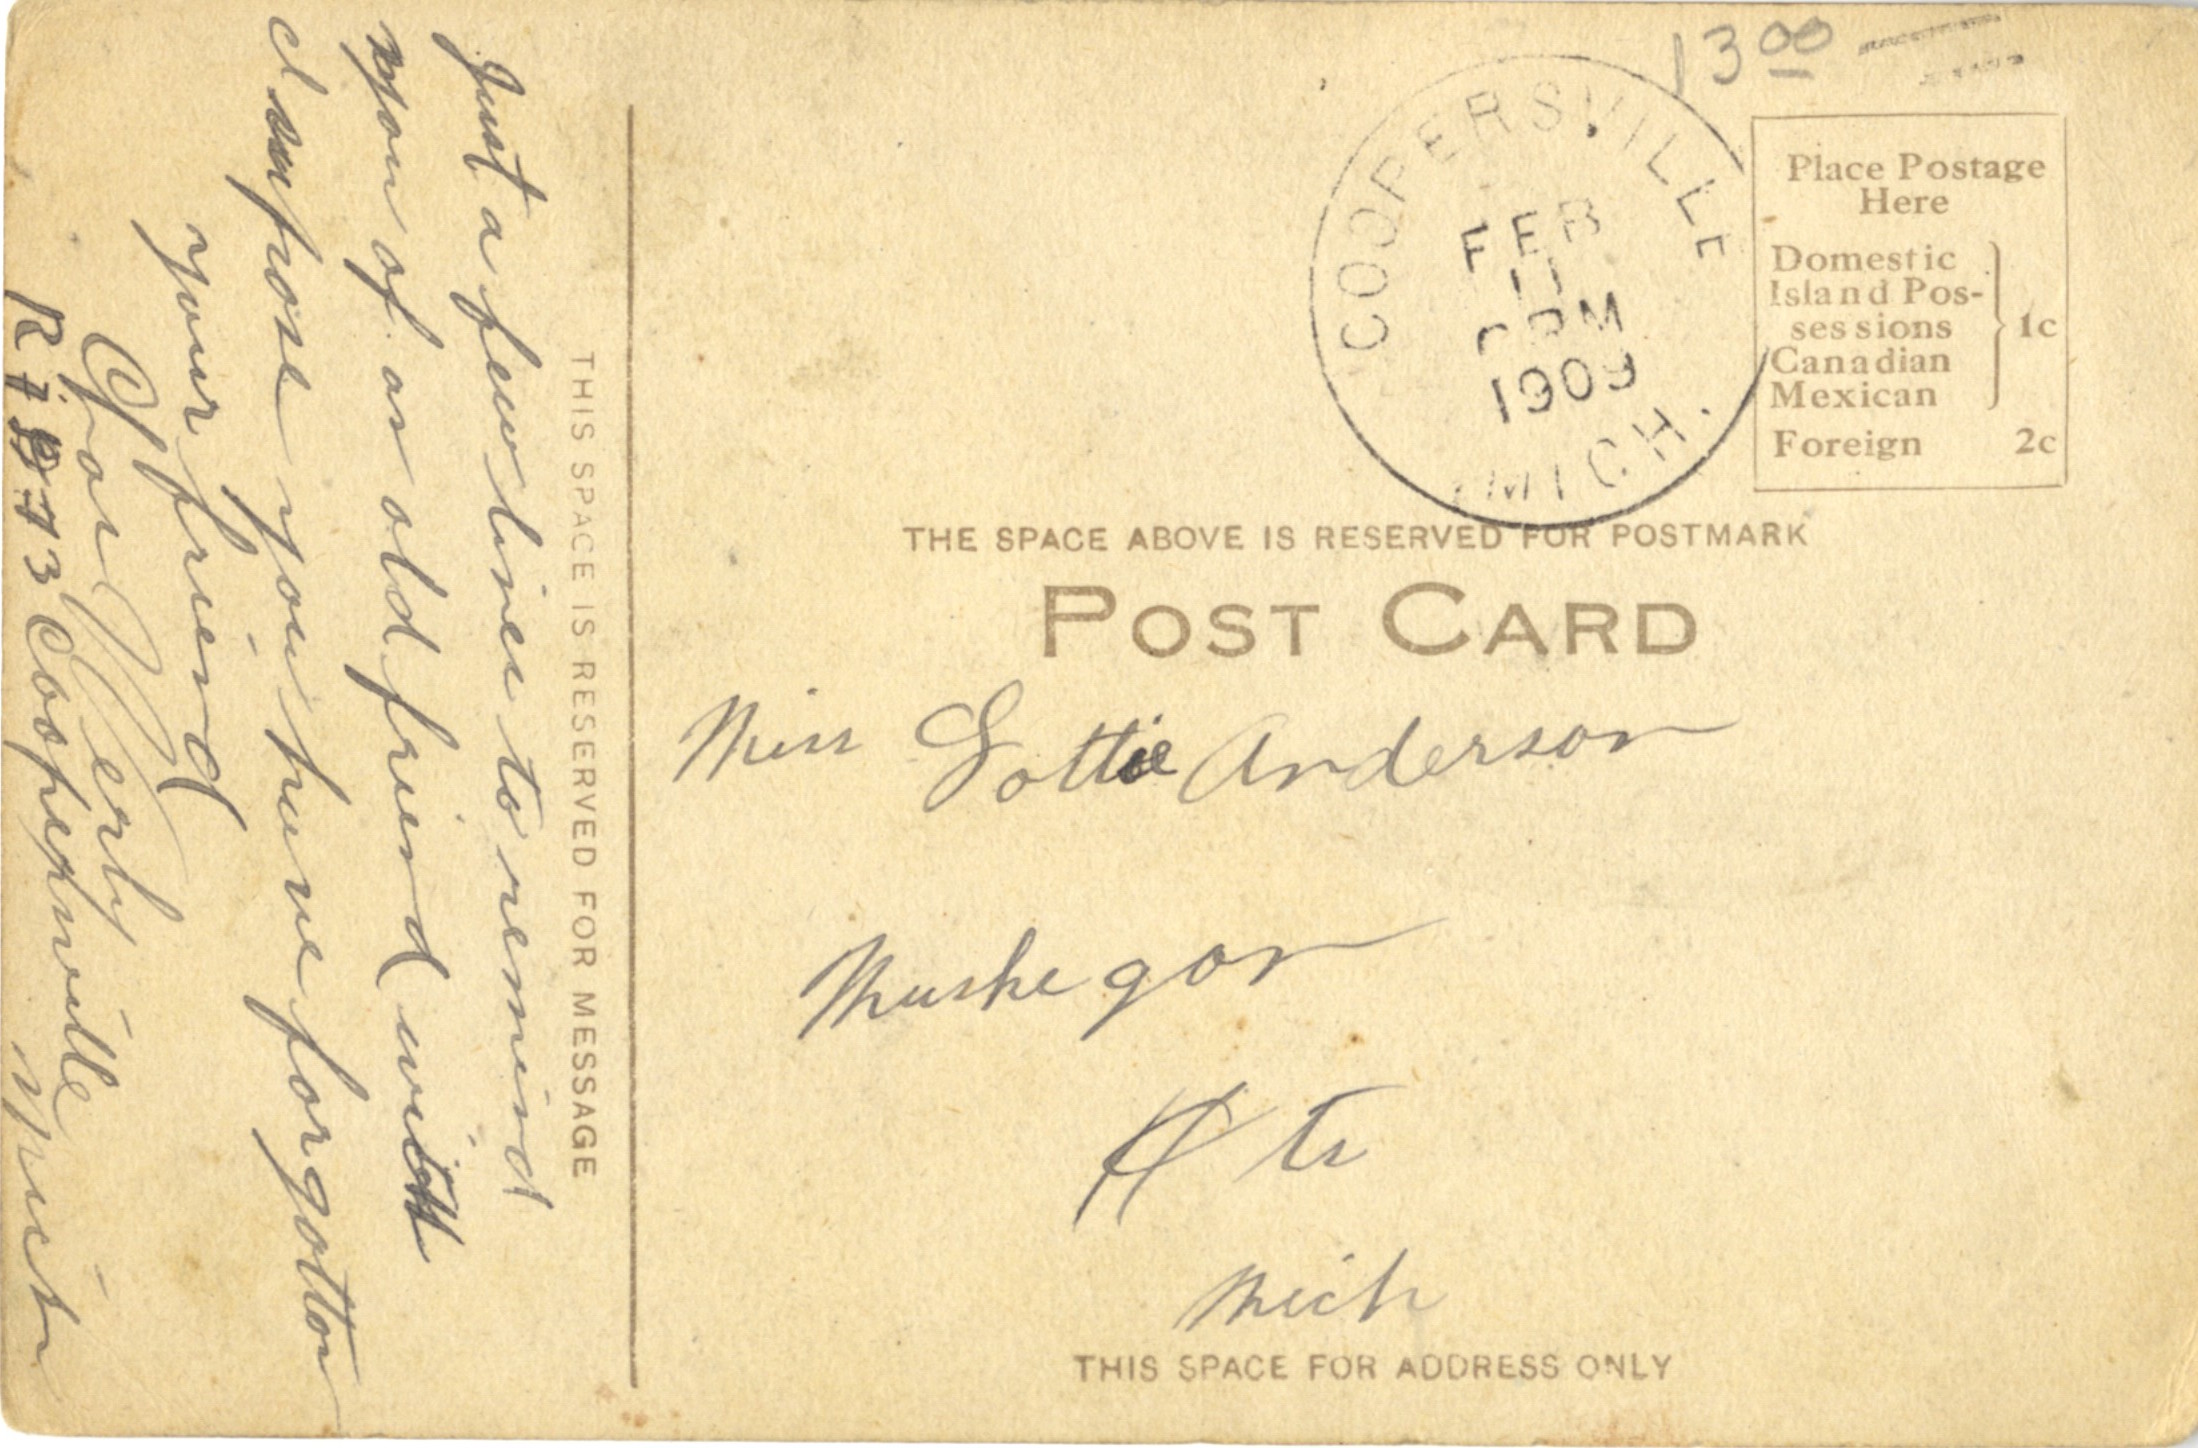 Just a few lines to remind
you of an old friend with
I supose you have forgotton
your friend
R
Coopersville Mich
THIS SPACE IS RESERVED FOR MESSAGE
13 00
COOPERSVILLE
FEB
11
PM
1909
MICH.
Place Postage
Here
Domestic
Island Pos-
sessions
Canadian
Mexican
1c
Foreign 2c
THE SPACE ABOVE IS RESERVED FOR POSTMARK
POST CARD
Miss Lottie Anderson
Muskegon
Hts
Mich
THIS SPACE FOR ADDRESS ONLY